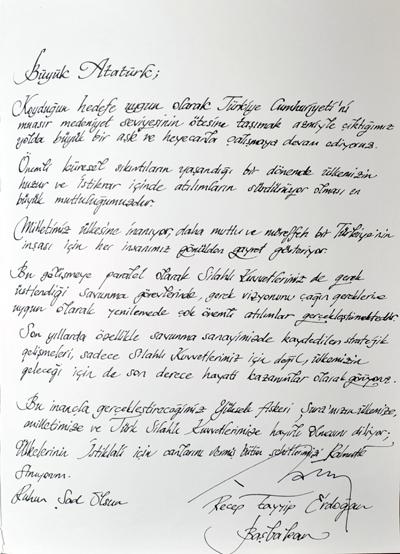 Büyük Atatürk;
Koyduğun hedefe uygun olarak Türkiye Cumhuriyeti'ni
muasır medeniyet seviyesinin ötesine taşımak azmiyle çıktığımız
yolda büyük bir aşk ve heyecanla çalışmaya devam ediyoruz.
Önemli küresel sıkıntıların yaşandığı bir dönemde ülkemizin
huzur ve istikrar içinde atılımlarını sürdürüyor olması en
büyük mutluluğumuzdur.
Milletimiz ülkesine inanıyor, daha mutlu ve müreffeh bir Türkiye'nin
inşası için her insanımız gönülden gayret gösteriyor.
Bu gelişmeye paralel olarak Silahlı Kuvvetlerimiz de gerek
üstlendiği savunma görevlerinde, gerek vizyonunu çağın gereklerine
uygun olarak yenilemede çok önemli atılımlar gerçekleştirmektedir.
Son yıllarda özellikle savunma sanayimizde kaydedilen stratejik
gelişmeleri, sadece Silahlı Kuvvetlerimiz için değil, ülkemizin
geleceği için de son derece hayati kazanımlar olarak görüyoruz.
Bu inançla gerçekleştireceğimiz Yüksek Askeri Şura'mızın ülkemize,
milletimize ve Türk Silahlı Kuvvetlerimize hayırlı olmasını diliyor;
Ülkelerinin İstiklali için canlarını vermiş bütün şehitlerimizi Rahmetle
anıyorum.
Ruhun Şad Olsun
Recep Tayyip Erdoğan
Başbakan